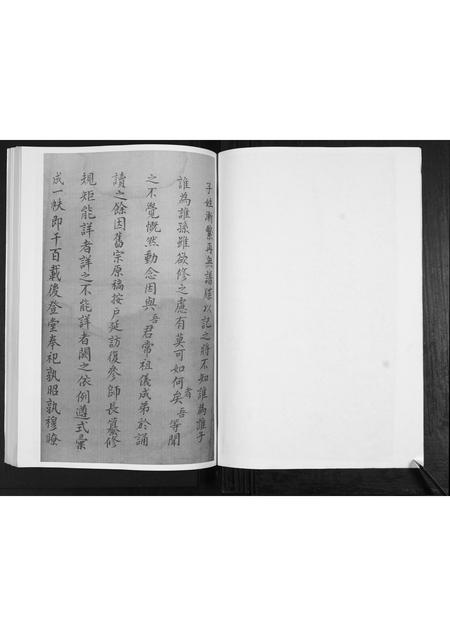 子姓漸繁再無譜牒以記之將不知誰為誰子
誰為誰孫雖欲修之慮有莫可如何者矣吾等聞
之不覺慨然動念因與吾君常祖儀成弟於誦
讀之餘因舊宗原稿按户延訪復參師長纂修
規矩能詳者詳之不能詳者闕之依例遵式彙
成一帙即千百載後登堂奉祀孰昭孰穆瞭